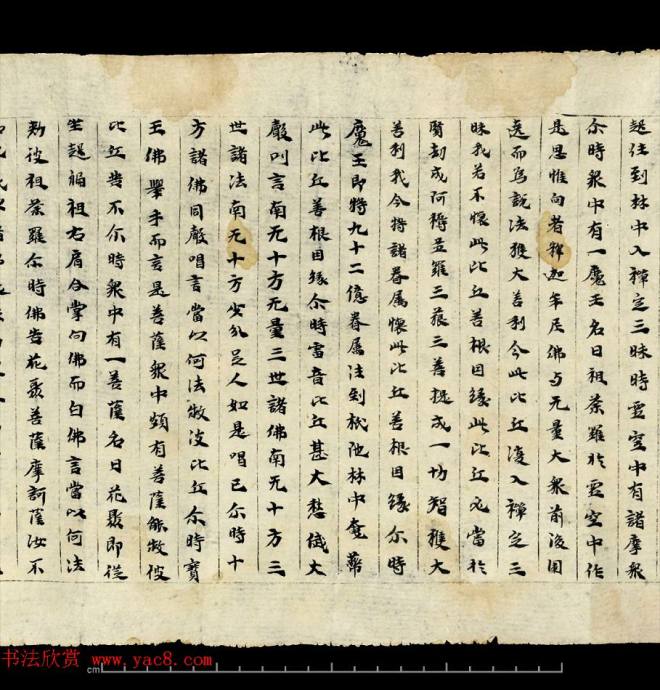 起往到林中入禪定三昧時虛空中有諸摩衆
尒時衆中有一魔王名曰祖荼羅於虛空中作
是思惟向者釋迦牟尼佛与无量大衆前後圍
遶而為說法獲大善利今此比丘復入禪定三
昧我若不懷此比丘善根因緣此比丘必當於
賢劫成阿耨多羅三藐三菩提成一切智獲大
善利我今將諸眷属懷此比丘善根因緣尒時
魔王即將九十二億眷属法到柢陁林中奄蔽
此比丘善根因緣尒時雷音比丘甚大愁大
聲叫言南无十方无量三世諸佛南无十方三
世諸法南无十方少分足人如是唱已尒時十
方諸佛同聲唱言當以何法救彼比丘尒時寶
王佛舉手而言是菩薩衆中頗有菩薩能救彼
比丘苦不尒時衆中有一菩薩名曰花聚即從
坐起徧袒右肩合掌向佛而白佛言當以何法
勑彼祖荼羅尒時佛告花聚菩薩摩訶薩汝不
书法欣赏 www.yac8.com
cm